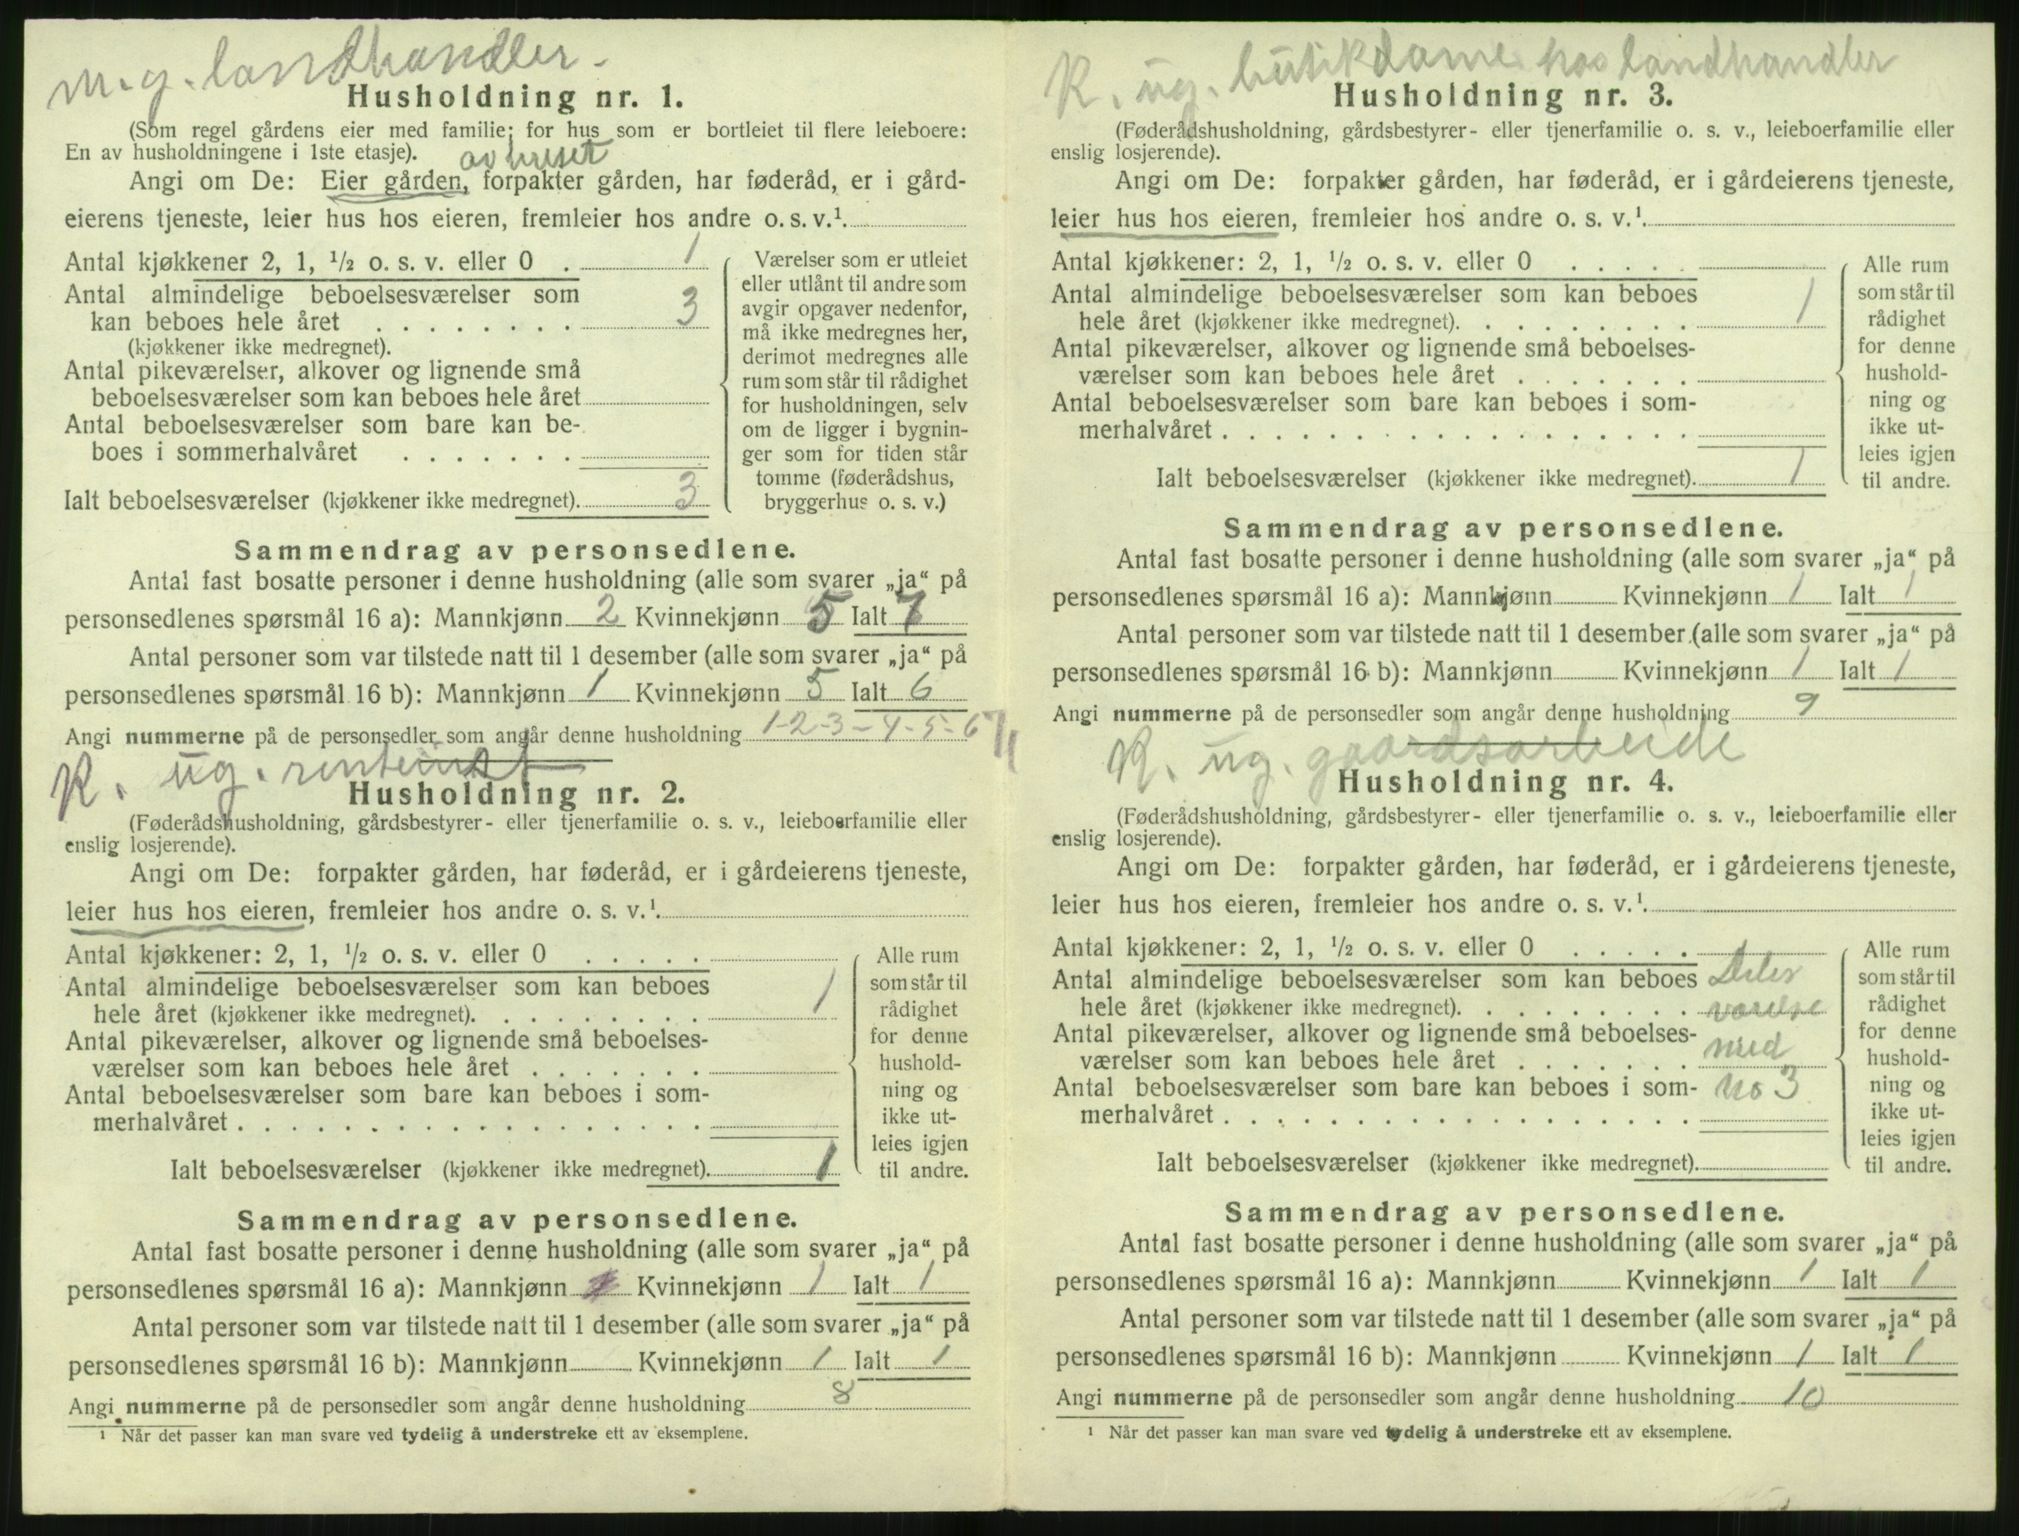 m. g. landhandler.
Husholdning nr. 1.
(Som regel gårdens eier med familie; for hus som er bortleiet til flere leieboere:
En av husholdningene i 1ste etasje).
av huset
Angi om De: Eier gården, forpakter gården, har føderåd, er i gård-
eierens tjeneste, leier hus hos eieren, fremleier hos andre o. s. v.¹.
Antal kjøkkener 2, 1, ½ o. s. v. eller 0 . 1
Antal almindelige beboelsesværelser som
kan beboes hele året . . . . . . . . 3
(kjøkkener ikke medregnet).
Antal pikeværelser, alkover og lignende små
beboelsesværelser som kan beboes hele året
Antal beboelsesværelser som bare kan be-
boes i sommerhalvåret . . . . . . .
Ialt beboelsesværelser (kjøkkener ikke medregnet). 3
Værelser som er utleiet
eller utlånt til andre som
avgir opgaver nedenfor,
må ikke medregnes her,
derimot medregnes alle
rum som står til rådighet
for husholdningen, selv
om de ligger i bygnin-
ger som for tiden står
tomme (føderådshus,
bryggerhus o. s. v.)
Sammendrag av personsedlene.
Antal fast bosatte personer i denne husholdning (alle som svarer „ja“ på
personsedlenes spørsmål 16 a): Mannkjønn 2 Kvinnekjønn 5 Ialt 7
Antal personer som var tilstede natt til 1 desember (alle som svarer „ja“ på
personsedlenes spørsmål 16 b): Mannkjønn 1 Kvinnekjønn 5 Ialt 6
Angi nummerne på de personsedler som angår denne husholdning 1-2-3-4-5-6-7
K. ug. renteinist
Husholdning nr. 2.
(Føderådshusholdning, gårdsbestyrer- eller tjenerfamilie o. s. v., leieboerfamilie eller
enslig losjerende).
Angi om De: forpakter gården, har føderåd, er i gårdeierens tjeneste,
leier hus hos eieren, fremleier hos andre o. s. v.¹.
Antal kjøkkener: 2, 1, ½ o. s. v. eller 0 . . . . .
Antal almindelige beboelsesværelser som kan beboes
hele året (kjøkkener ikke medregnet). . . . . . . . . 1
Antal pikeværelser, alkover og lignende små beboelses-
værelser som kan beboes hele året . . . . . . .
Antal beboelsesværelser som bare kan beboes i som-
merhalvåret . . . . . . . . . . . . . . . . . .
Ialt beboelsesværelser (kjøkkener ikke medregnet). 1
Alle rum
som står til
rådighet
for denne
hushold-
ning og
ikke ut-
leies igjen
til andre.
Sammendrag av personsedlene.
Antal fast bosatte personer i denne husholdning (alle som svarer „ja“ på
personsedlenes spørsmål 16 a): Mannkjønn Kvinnekjønn 1 Ialt 1
Antal personer som var tilstede natt til 1 desember (alle som svarer „ja“ på
personsedlenes spørsmål 16 b): Mannkjønn Kvinnekjønn 1 Ialt 1
Angi nummerne på de personsedler som angår denne husholdning 8
¹ Når det passer kan man svare ved tydelig å understreke ett av eksemplene.
K. ug. butikdame hos landhandler
Husholdning nr. 3.
(Føderådshusholdning, gårdsbestyrer- eller tjenerfamilie o. s. v., leieboerfamilie eller
enslig losjerende).
Angi om De: forpakter gården, har føderåd, er i gårdeierens tjeneste,
leier hus hos eieren, fremleier hos andre o. s. v.¹.
Antal kjøkkener: 2, 1, ½ o. s. v. eller 0 . . . . .
Antal almindelige beboelsesværelser som kan beboes
hele året (kjøkkener ikke medregnet). . . . . . . . . 1
Antal pikeværelser, alkover og lignende små beboelses-
værelser som kan beboes hele året . . . . . . .
Antal beboelsesværelser som bare kan beboes i som-
merhalvåret . . . . . . . . . . . . . . . . . .
Ialt beboelsesværelser (kjøkkener ikke medregnet). 1
Alle rum
som står til
rådighet
for denne
hushold-
ning og
ikke ut-
leies igjen
til andre.
Sammendrag av personsedlene.
Antal fast bosatte personer i denne husholdning (alle som svarer „ja“ på
personsedlenes spørsmål 16 a): Mannkjønn Kvinnekjønn 1 Ialt 1
Antal personer som var tilstede natt til 1 desember (alle som svarer „ja“ på
personsedlenes spørsmål 16 b): Mannkjønn Kvinnekjønn 1 Ialt 1
Angi nummerne på de personsedler som angår denne husholdning 9
K. ug. gaardsarbeide
Husholdning nr. 4.
(Føderådshusholdning, gårdsbestyrer- eller tjenerfamilie o. s. v., leieboerfamilie eller
enslig losjerende).
Angi om De: forpakter gården, har føderåd, er i gårdeierens tjeneste,
leier hus hos eieren, fremleier hos andre o. s. v.¹.
Antal kjøkkener: 2, 1, ½ o. s. v. eller 0 . . . . .
Antal almindelige beboelsesværelser som kan beboes Deler
hele året (kjøkkener ikke medregnet). . . . . . . . . værelse
Antal pikeværelser, alkover og lignende små beboelses-
værelser som kan beboes hele året . . . . . . . med
Antal beboelsesværelser som bare kan beboes i som- No 3
merhalvåret . . . . . . . . . . . . . . . . . .
Ialt beboelsesværelser (kjøkkener ikke medregnet).
Alle rum
som står til
rådighet
for denne
hushold-
ning og
ikke ut-
leies igjen
til andre.
Sammendrag av personsedlene.
Antal fast bosatte personer i denne husholdning (alle som svarer „ja“ på
personsedlenes spørsmål 16 a): Mannkjønn Kvinnekjønn 1 Ialt 1
Antal personer som var tilstede natt til 1 desember (alle som svarer „ja“ på
personsedlenes spørsmål 16 b): Mannkjønn Kvinnekjønn 1 Ialt 1
Angi nummerne på de personsedler som angår denne husholdning 10
¹ Når det passer kan man svare ved tydelig å understreke ett av eksemplene.